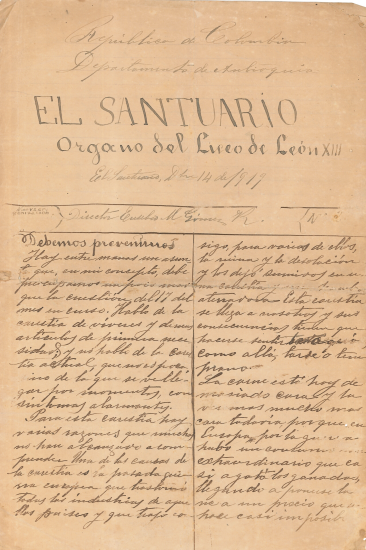 República de Colombia
Departamento de Antioquia
EL SANTUARIO
Organo del Liceo de León XIII
El Santuario, 14 de 1919
Director M. Gómez R.
Debemos prevenirnos
Hay entre manos un asun
to que, en mi concepto, debe
preocuparnos un poco mas
que la cuestion del 15 del
mes en curso. Hablo de la
carestia de viveres y demas
articulos de primera nece
sidad y no hablo de la cares
tia actual, que no es pro
sino de la que se
por momentos, con
sintomas alarmantes.
Para esta carestia hay
varias razones que muchos
no han alcanzado a com
prender. Una de las causas de
la carestia es la pasada gue
rra europea que trastornó
todas las industrias de aque
llos paises y que trajo con
sigo, para varios de ellos,
la ruina y la desolación
y los dejó sumidos en
una carestia
Esta carestia
se llega a nosotros y sus
consecuencias tienen que
hacerse sentir aquí
como allá, tarde o tem
prano.
La carne está hoy de
masiado cara y la
veremos mucho mas
cara todavia, porque en
Europa, por la guerra
hubo un consumo
extraordinario que ca
si agotó los ganados,
llegando a ponerse la
carne a un precio que a
hace casi imposib